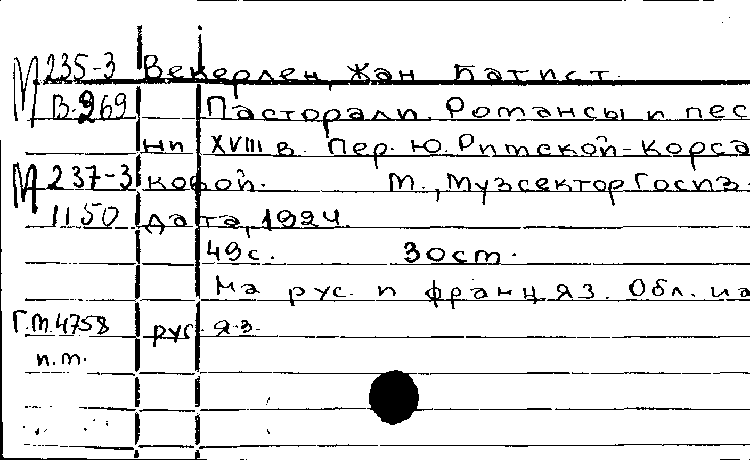 М 235-3 Векерлен, Жан Батист.
В-969 Пасторали. Романсы и пес
ни XVIII в. Пер. Ю. Римской-Корса
М 237-3 ковой. М., Музсектор Госиз-
1150 дата, 1924.
49с. 30см.
На рус. и франц. яз. Обл. на
Г.м.4758 рус. яз.
п.т.